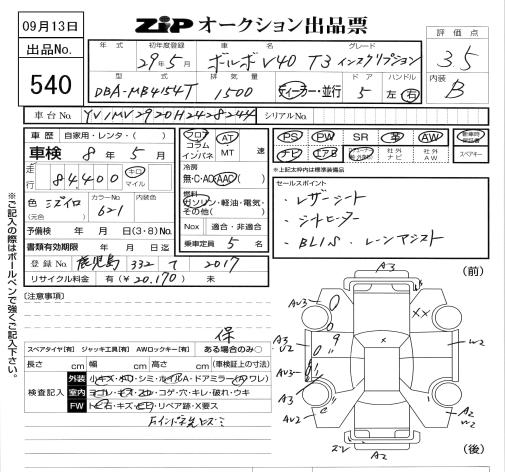 09月13日
ZiP オークション出品票
評価点
3.5
出品No.
540
年式 初年度登録 車名 グレード
29年5月 ボルボV40 T3 インスクリプション
型式 排気量 ドア ハンドル
DBA-MB4154T 1500 ディーラー・並行 5 左 右
内装
B
車台No. YV1MV2920H2428244 シリアルNo.
車歴 自家用・レンタ・( )
車検 8年5月
走行 84,400 キロ マイル
色 (元色) ミズイロ カラーNo. 621 内装色
予備検 年 月 日(3・8)No.
書類有効期限 年 月 日迄
登録No. 鹿児島 332 て 2017
リサイクル料金 有(¥20,170) 未
フロア コラム インパネ AT MT 速
冷房 無・C・AC・AAC( )
燃料 ガソリン・軽油・電気・その他( )
Nox 適合・非適合
乗車定員 5 名
PS PW SR 革 AW
ナビ エアB 社外ナビ 社外AW
新車時保証書
スペアキー
*上記太枠内は標準装備品
セールスポイント
・レザーシート
・シートヒーター
・BLIS、レーンアシスト
※ご記入の際はボールペンで強くご記入下さい。
[注意事項]
保
スペアタイヤ[有] ジャッキ工具[有] AWロックキー[有] ある場合のみ○
長さ cm 幅 cm 高さ cm (車検証上の寸法)
検査記入
外装 小キズ・凹・シミ・ホイルA・ドアミラー(A・ワレ)
室内 ヨゴレ・キズ・スレ・コゲ・穴・キレ・破れ・ウキ
FW トビ石・キズ・ヒビ・リペア跡・X要ス
(前)
A3
AU3
XX
A3
U2
9
X
W2
AU3
A3
AU2
A2
W2
A2
(後)